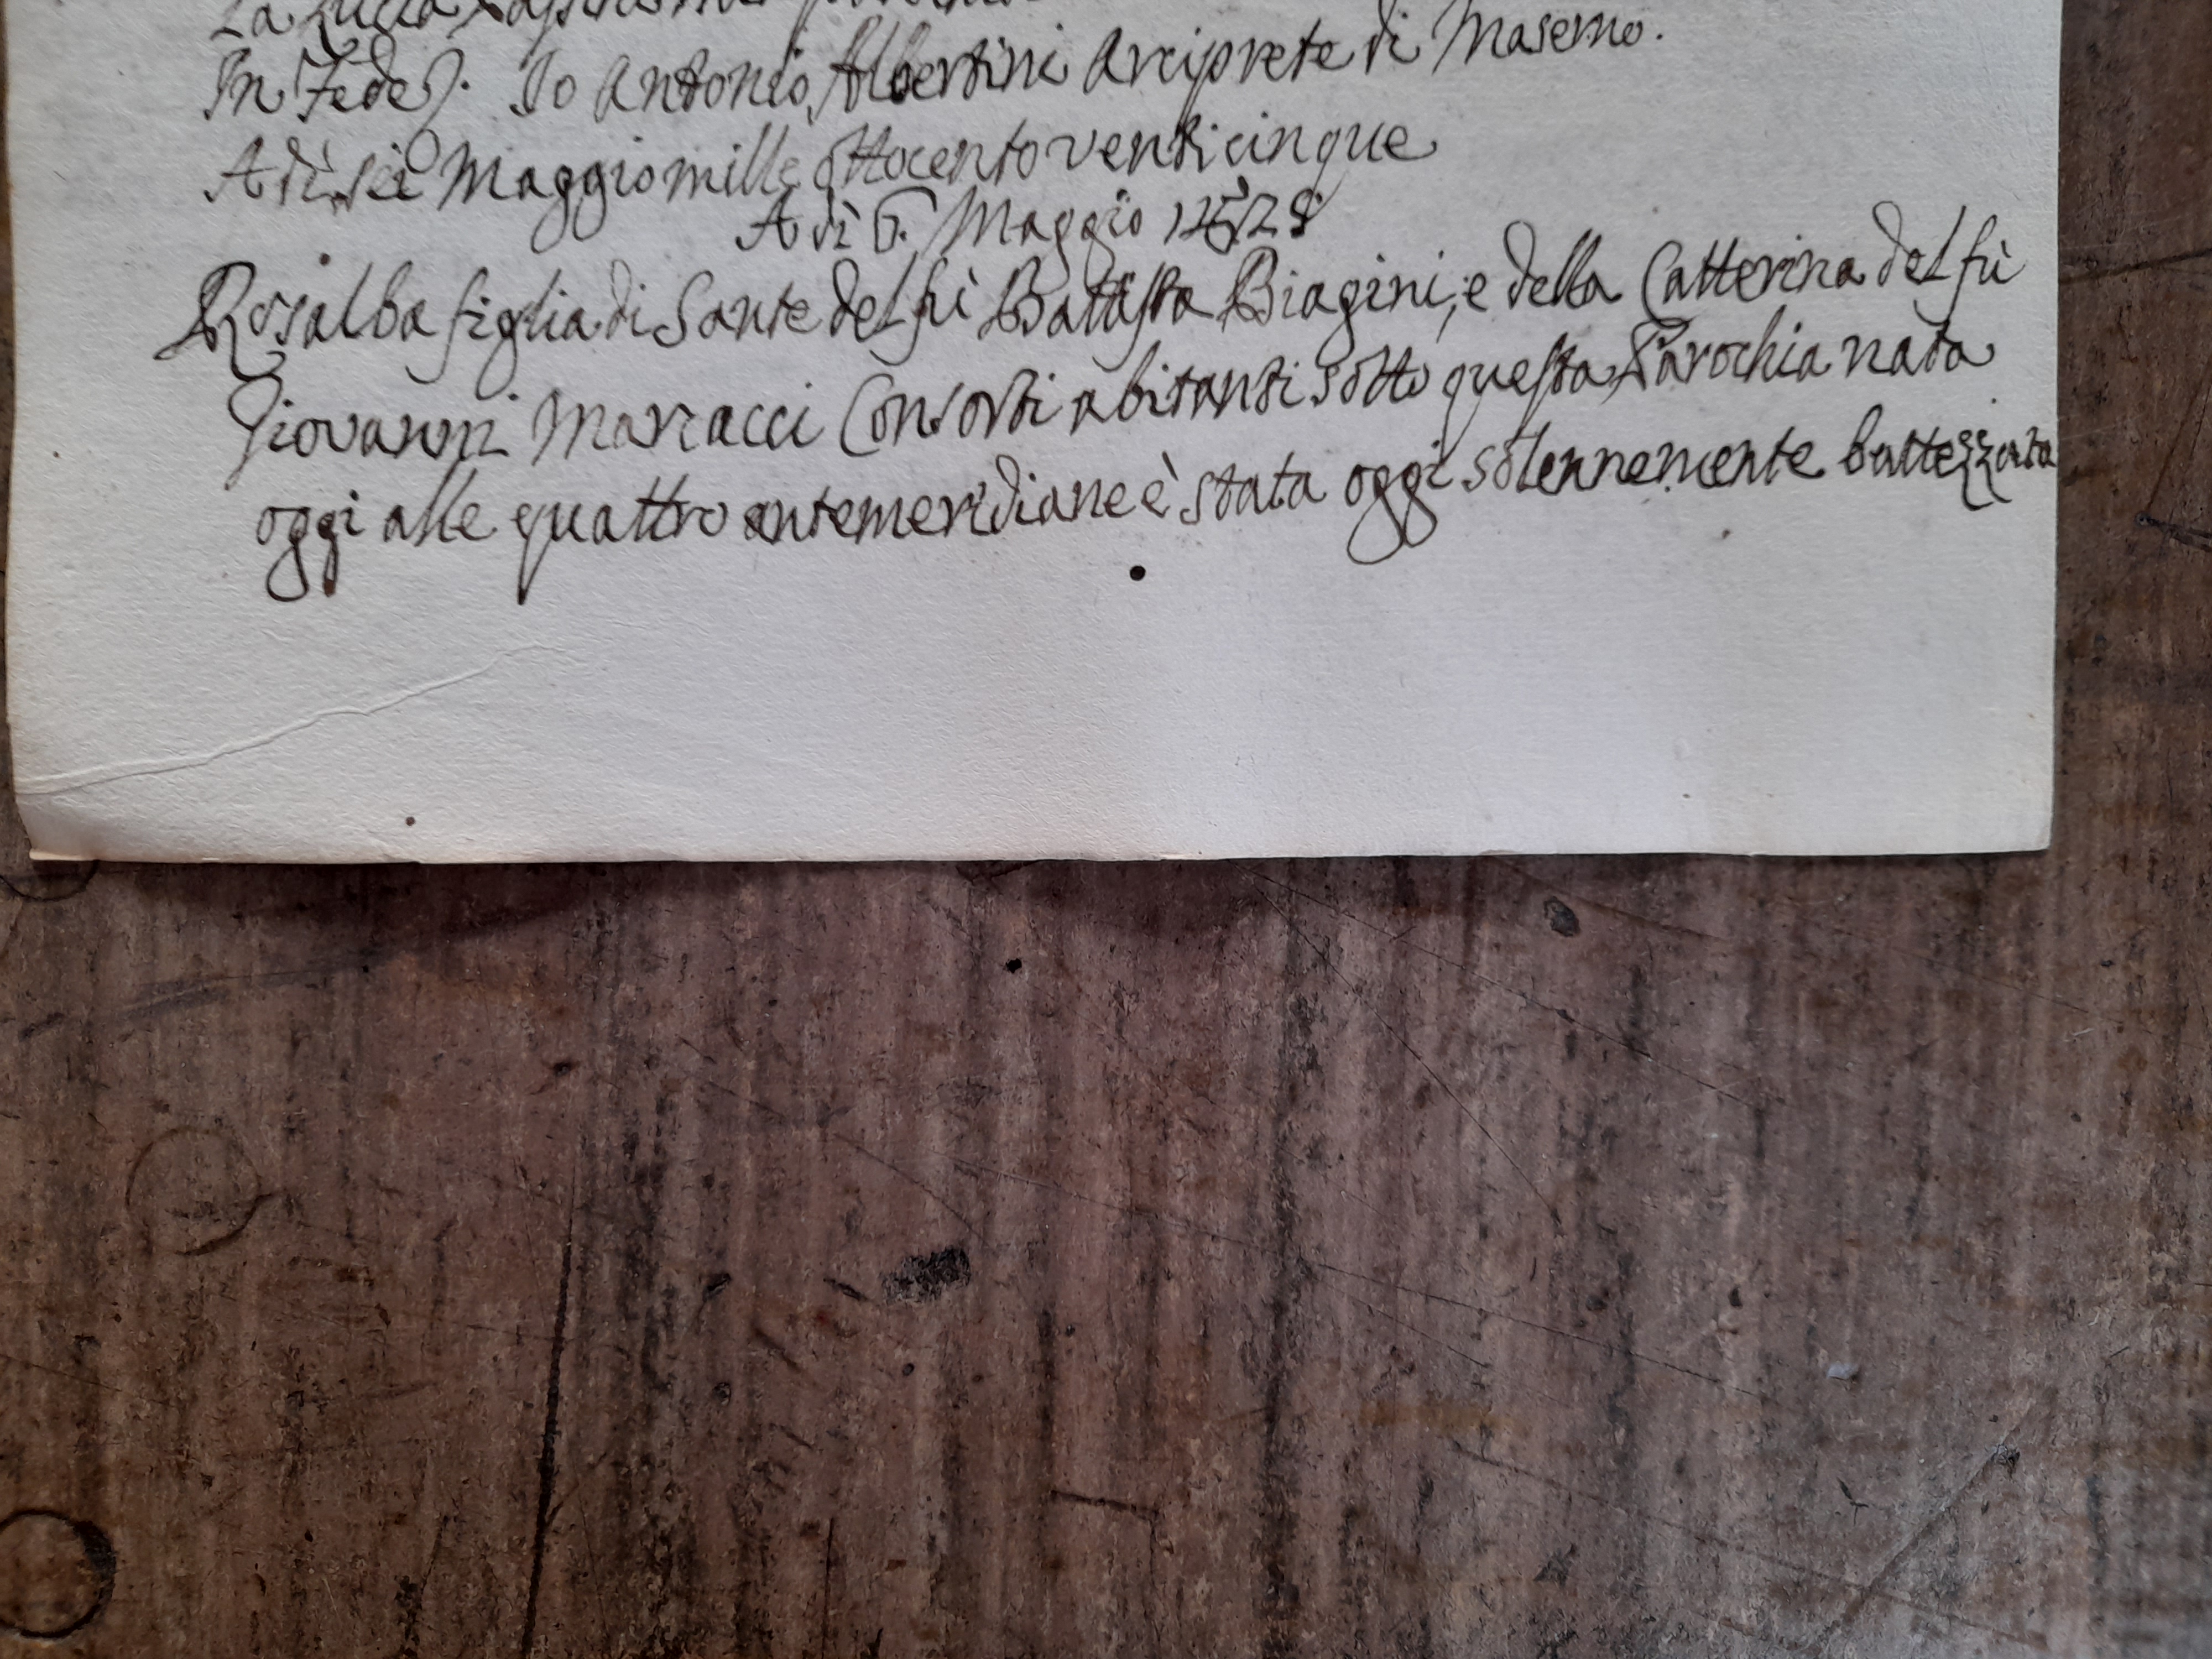 La Lucia
In Fede. Io Antonio Albertini Arciprete di Maserno.
A dì sei Maggio mille ottocento venticinque
A dì 6. Maggio
Rosalba figlia di Sante del fù Batista Biagini, e della Catterina del fù
Giovanni Marcacci Consorti abitanti sotto questa Parochia nata
oggi alle quattro antemeridiane è stata oggi solennemente battezzata